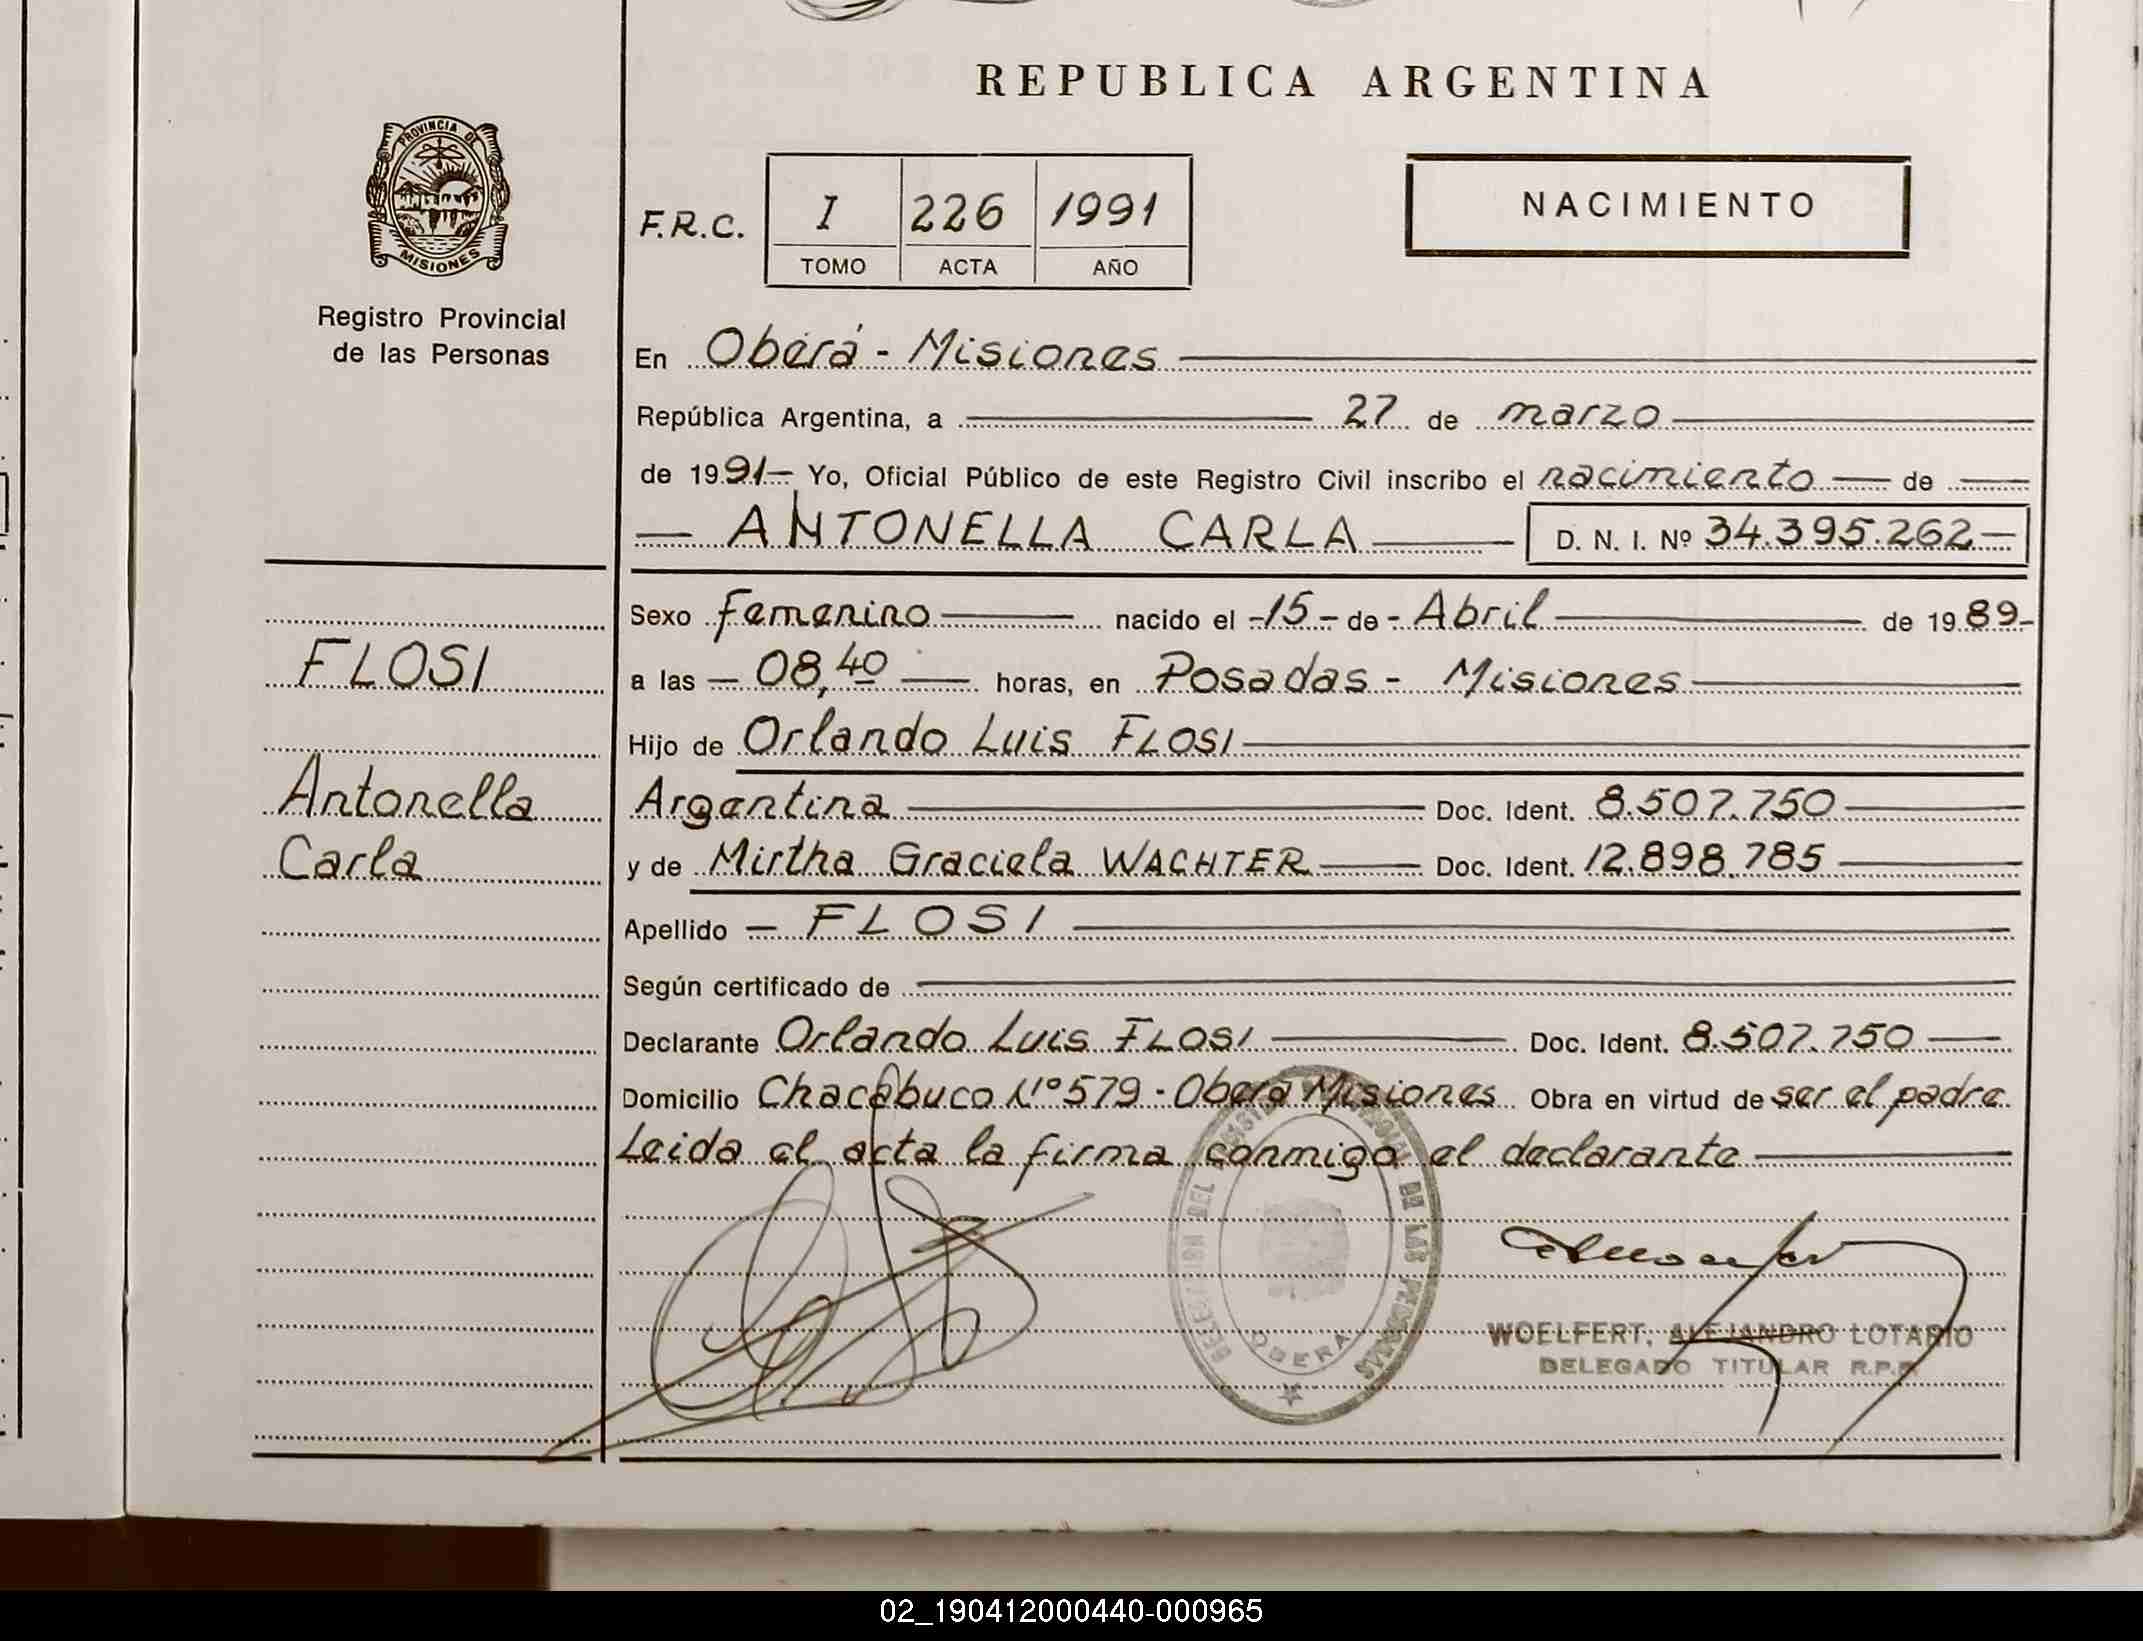 REPUBLICA ARGENTINA
PROVINCIA DE
MISIONES
Registro Provincial
de las Personas
F.R.C. I 226 1991
TOMO ACTA AÑO
NACIMIENTO
En Oberá - Misiones
República Argentina, a 27 de marzo
de 1991- Yo, Oficial Público de este Registro Civil inscribo el nacimiento de
ANTONELLA CARLA D. N. I. Nº 34.395.262-
Sexo Femenino nacido el -15- de - Abril de 1989-
a las - 08,40 horas, en Posadas - Misiones
Hijo de Orlando Luis FLOSI
Argentina Doc. Ident. 8.507.750
y de Mirtha Graciela WACHTER Doc. Ident. 12.898.785
Apellido - FLOSI
Según certificado de
Declarante Orlando Luis FLOSI Doc. Ident. 8.507.750
Domicilio Chacabuco Nº 579 - Oberá Misiones Obra en virtud de ser el padre
Leida el acta la firma conmigo el declarante
FLOSI
Antonella
Carla
DE LAS PERSONAS
OBERA
WOELFERT, ALEJANDRO LOTARIO
DELEGADO TITULAR R.P.P.
02_190412000440-000965